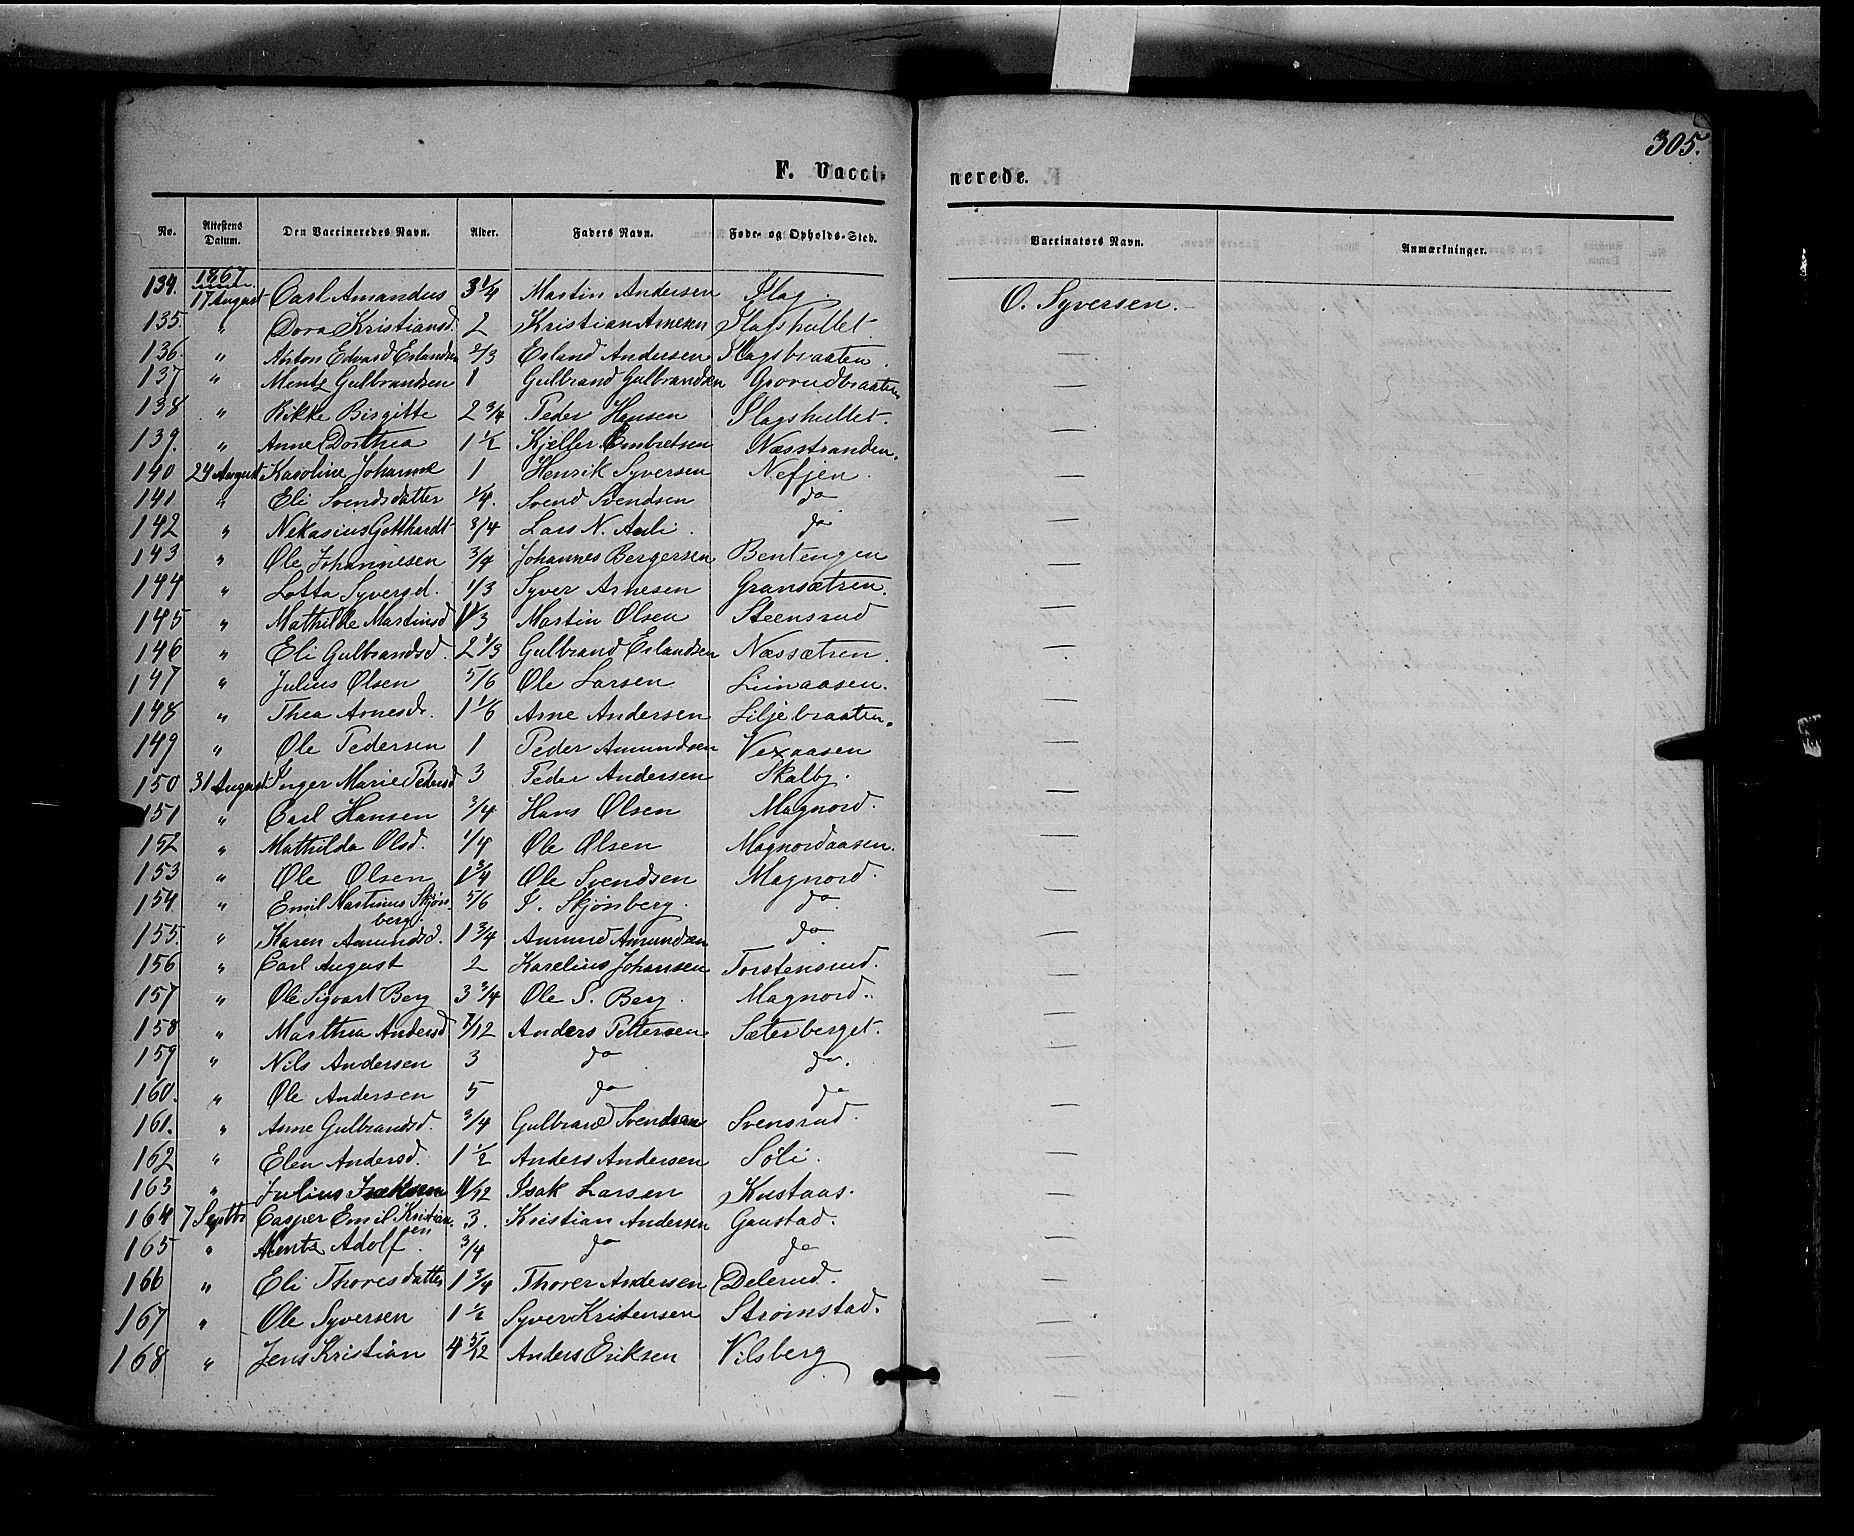 305.
F. Vaccinerede.
No. Attestens Datum. Den Vaccineredes Navn. Alder. Faders Navn. Føde- og Opholds-Sted. Vaccinators Navn. Anmærkninger.
1867
134. 17 August Carl Amandus 3 1/4 Martin Andersen Slag. O. Syversen.
135. " Dora Kristiansd. 2 Kristian Arnesen Slagshullet —
136. " Anton Edvard Erlandsen 2/3 Erland Andersen Slagsbraaten —
137 " Mentz Gulbrandsen 1 Gulbrand Gulbrandsen Gorudbraaten —
138 " Rikke Birgitte 2 3/4 Peder Hansen Slagshullet. —
139. " Anne Dorthea 1 1/2 Kjeller Embretsen Næsstranden. —
140 24 August Karoline Johanne 1 Henrik Syversen Nefjen. —
141 " Eli Svendsdatter 1/4. Svend Svendsen do —
142 " Nekasius Gotthardt 3/4 Lars N. Auli. do —
143 " Ole Johannesen 3/4 Johannes Bergersen Bentengen —
144 " Lotta Syversd. 1/3 Syver Arnesen Gransætren. —
145 " Mathilde Martinsd 1/3 Martin Olsen Steensrud —
146 " Eli Gulbrandsd. 2 1/3 Gulbrand Erlandsen Næssætren. —
147 " Julius Olsen 5/6 Ole Larsen Liinaasen. —
148 " Thea Arnesdr. 1 1/6 Arne Andersen Liljebraaten. —
149 " Ole Pedersen 1 Peder Amundsen Vexaasen —
150 31 August Inger Marie Pedersd 3 Peder Andersen Skalby. —
151 " Carl Hansen 3/4 Hans Olsen Magnord. —
152 " Mathilda Olsd. 1/4 Ole Olsen Magnordaasen. —
153 " Ole Olsen 1 3/4 Ole Svendsen Magnord. —
154 " Emil Martinus Skjønberg. 5/6 S. Skjønberg. do —
155. " Karen Amundsd. 1 3/4 Amund Amundsen do —
156 " Carl August 2 Karelius Johansen Torstensrud. —
157 " Ole Sigvart Berg 3 3/4 Ole S. Berg. Magnord. —
158 " Marthea Andersd 7/12 Anders Pettersen Sæterberget. —
159 " Nils Andersen 3 do do. —
160. " Ole Andersen 5 do do —
161. " Anne Gulbrandsd. 3/4 Gulbrand Svendsen Svensrud. —
162 " Elen Andersd. 1 1/2 Anders Andersen Søli. —
163 " Julius Isaksen 11/12 Isak Larsen Knstaas. —
164 7 Septbr Casper Emil Kristiansen 3. Kristian Andersen Gaustad. —
165 " Mentz Adolf. 3/4 do do —
166 " Eli Thoresdatter 1 3/4 Thorer Andersen Delerud. —
167 " Ole Syversen 1 1/2 Syver Kristensen Strømstad. —
168 " Jens Kristian 4 5/12 Anders Eriksen Vilsberg —